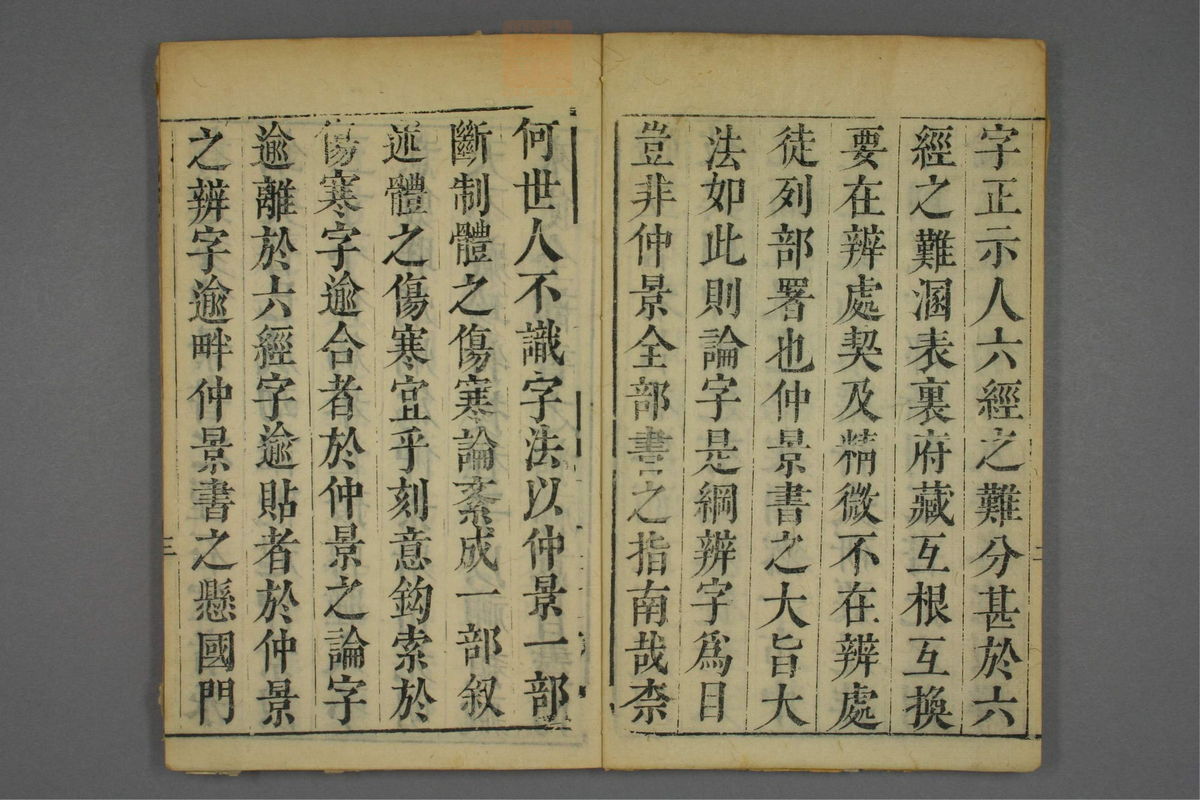 字正示人六經之難分甚於六
經之難溷表裏府藏互根互換
要在辨處契及精微不在辨處
徒列部署也仲景書之大旨大
法如此則論字是綱辨字爲目
豈非仲景全部書之指南哉柰
二
何世人不識字法以仲景一部
斷制體之傷寒論紊成一部叙
述體之傷寒宜乎刻意鈎索於
傷寒字逾合者於仲景之論字
逾離於六經字逾貼者於仲景
之辨字逾畔仲景書之懸國門
三